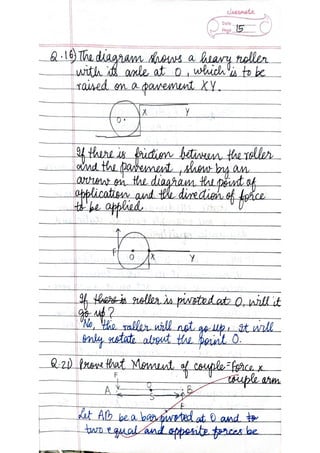 classmate
Date
Page 15
Q.18) The diagram shows a heavy roller
with its axle at O, which is to be
raised on a pavement XY.
X Y
O
If there is friction between the roller
and the pavement, show by an
arrow on the diagram the point of
application and the direction of force
to be applied.
F
O X Y
If there is roller is pivoted at O, will it
go up?
No, the roller will not go up, It will
only rotate about the point O.
Q.21) Prove that Moment of couple = Force x
couple arm
F
A O B
S
F
Let AB be a bar pivoted at O and to
two equal and opposite forces be